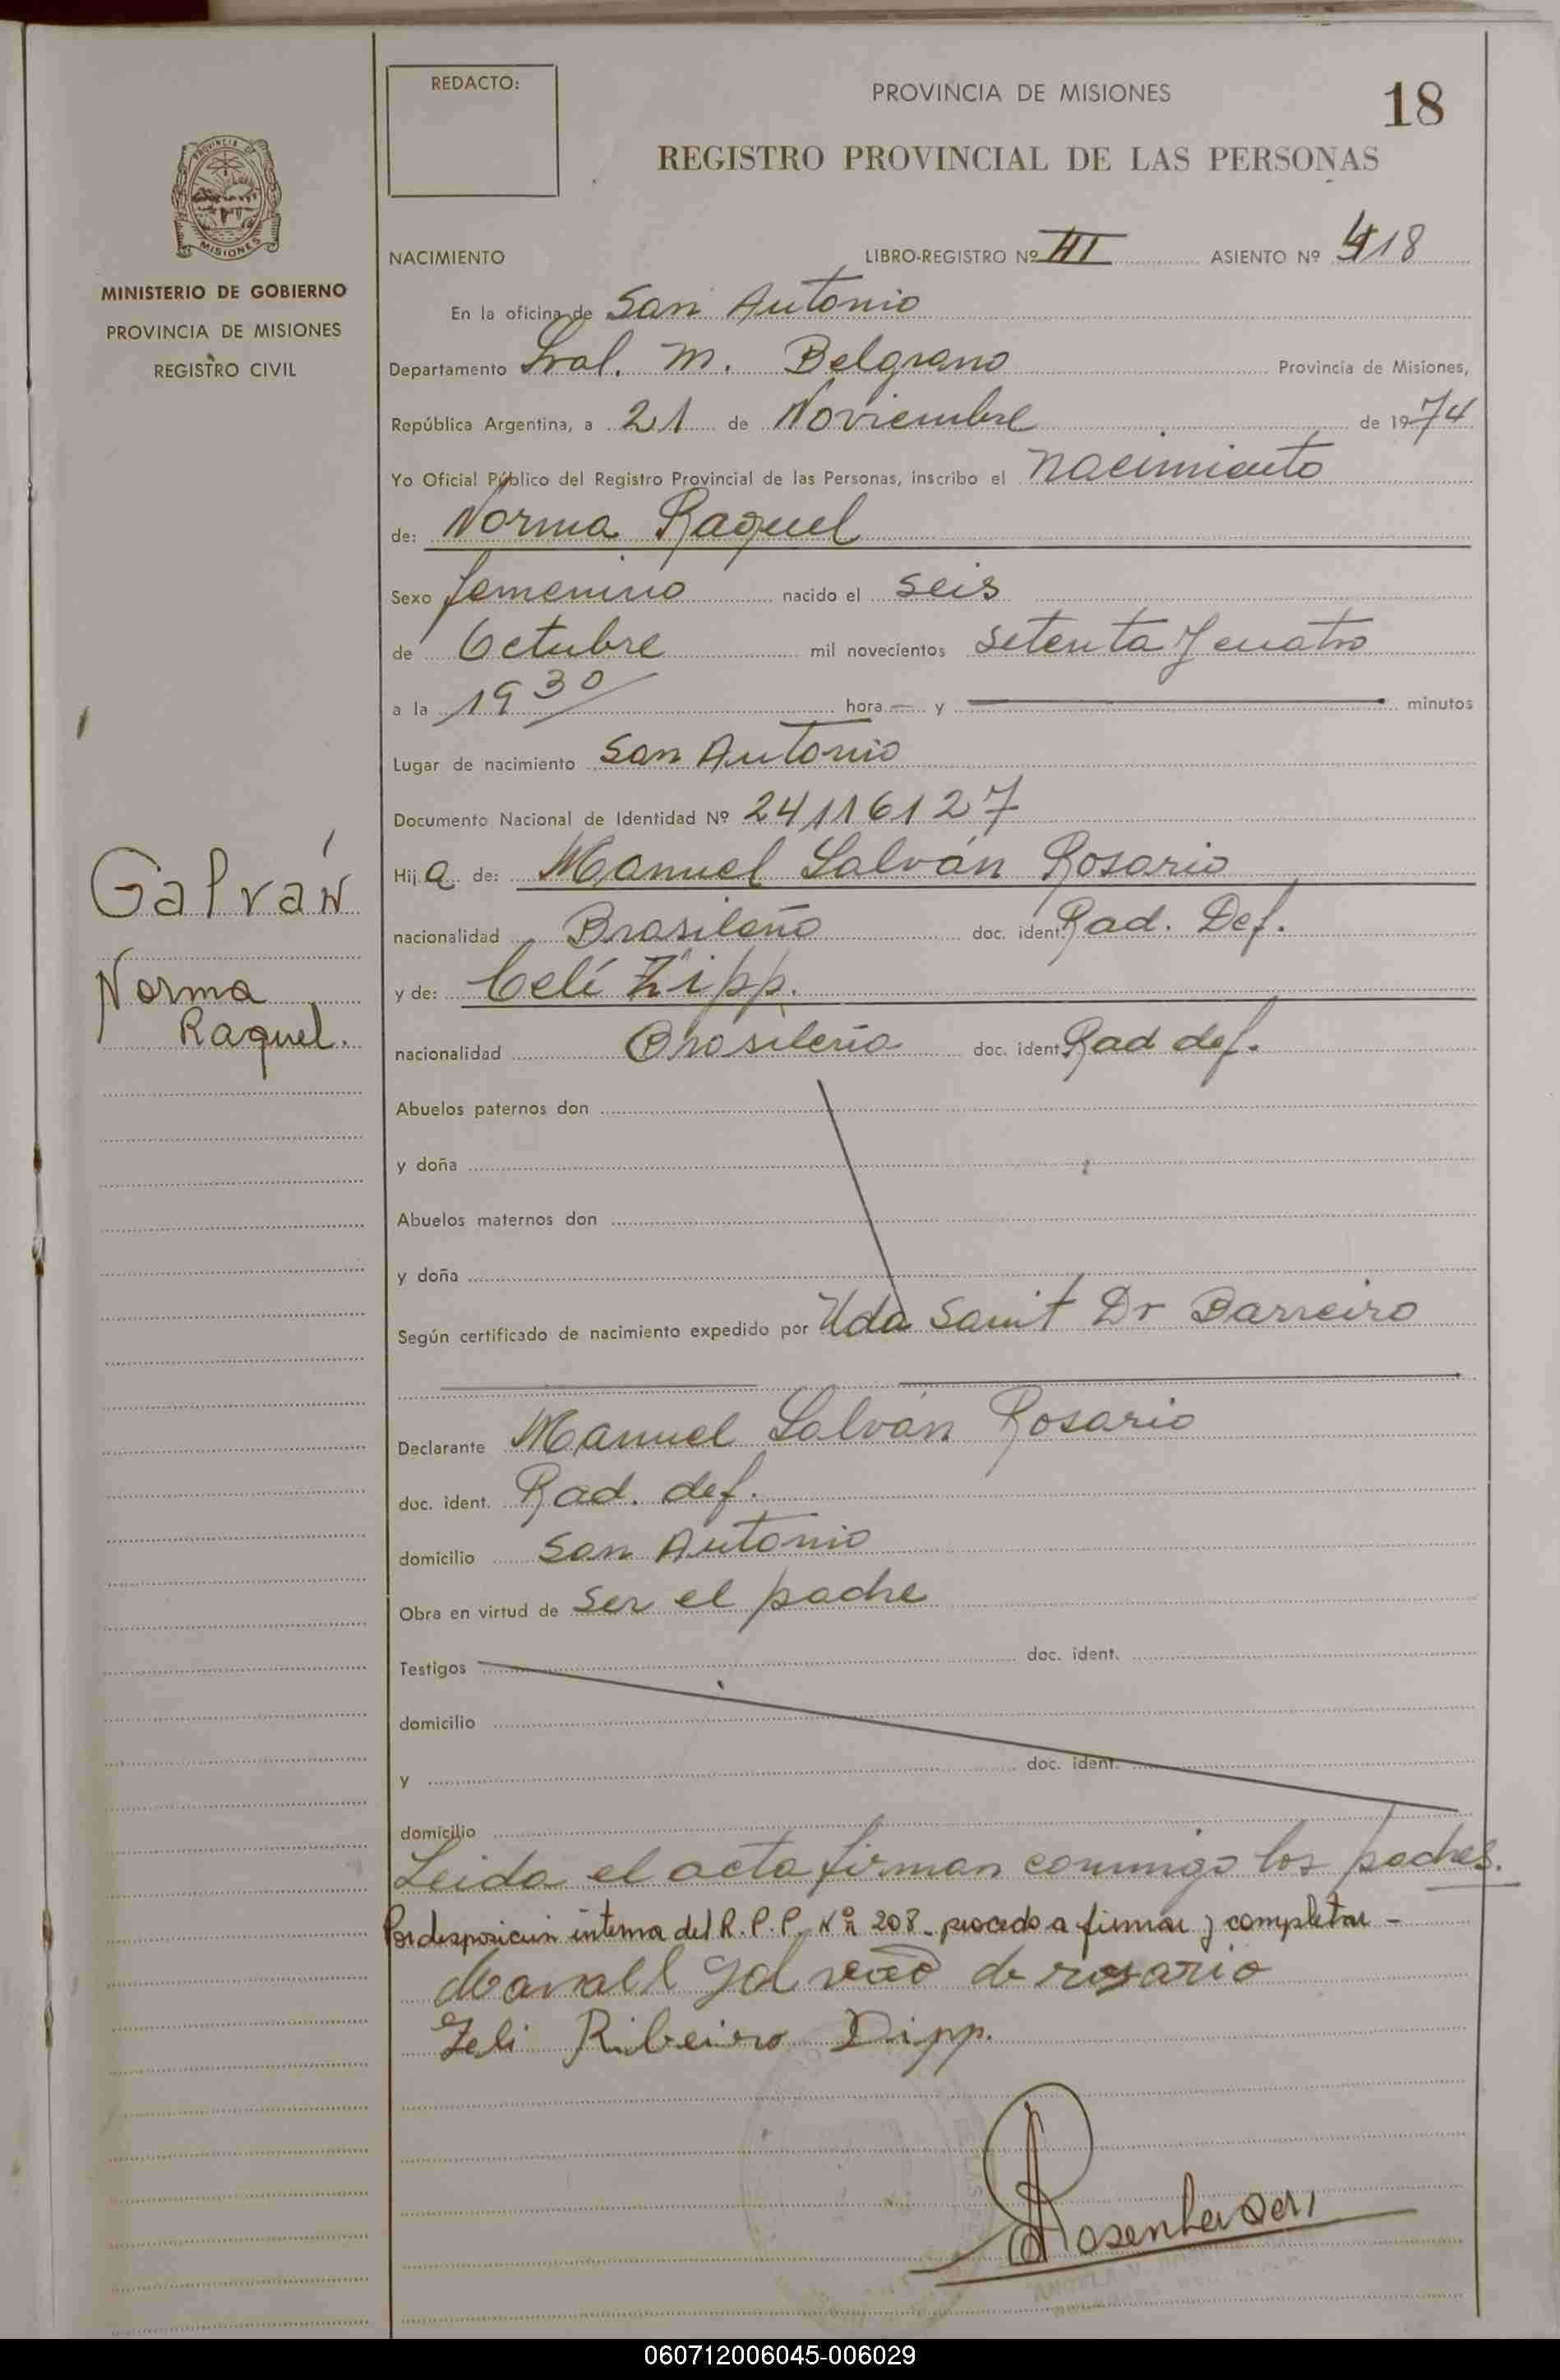 REDACTO:
PROVINCIA DE MISIONES
18
REGISTRO PROVINCIAL DE LAS PERSONAS
PROVINCIA DE
MISIONES
MINISTERIO DE GOBIERNO
PROVINCIA DE MISIONES
REGISTRO CIVIL
NACIMIENTO LIBRO-REGISTRO Nº III ASIENTO Nº 418
En la oficina de San Antonio
Departamento Gral. M. Belgrano Provincia de Misiones,
República Argentina, a 21 de Noviembre de 1974
Yo Oficial Público del Registro Provincial de las Personas, inscribo el nacimiento
de: Norma Raquel
Sexo femenino nacido el seis
de Octubre mil novecientos setenta y cuatro
a la 19 30 hora — y — minutos
Lugar de nacimiento San Antonio
Documento Nacional de Identidad Nº 24116127
Hija de: Manuel Galván Rosario
nacionalidad Brasileño doc. ident. Rad. Def.
y de: Celí Zipp.
nacionalidad Brasileña doc. ident. Rad def.
Galván
Norma
Raquel.
Abuelos paternos don
y doña
Abuelos maternos don
y doña
Según certificado de nacimiento expedido por Uda Sanit Dr Barreiro
Declarante Manuel Galván Rosario
doc. ident. Rad. def.
domicilio San Antonio
Obra en virtud de ser el padre
Testigos doc. ident.
domicilio
y doc. ident.
domicilio
Leida el acta firman conmigo los padres.
Por desposición interna del R.P.P. Nº 208 - procedo a firmar y completar -
de rosario
Zeli Ribeiro Dipp.
060712006045-006029